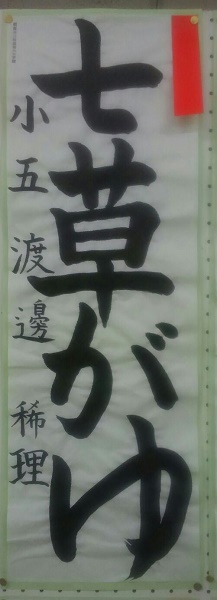 七草がゆ
小五 渡邊 稀理